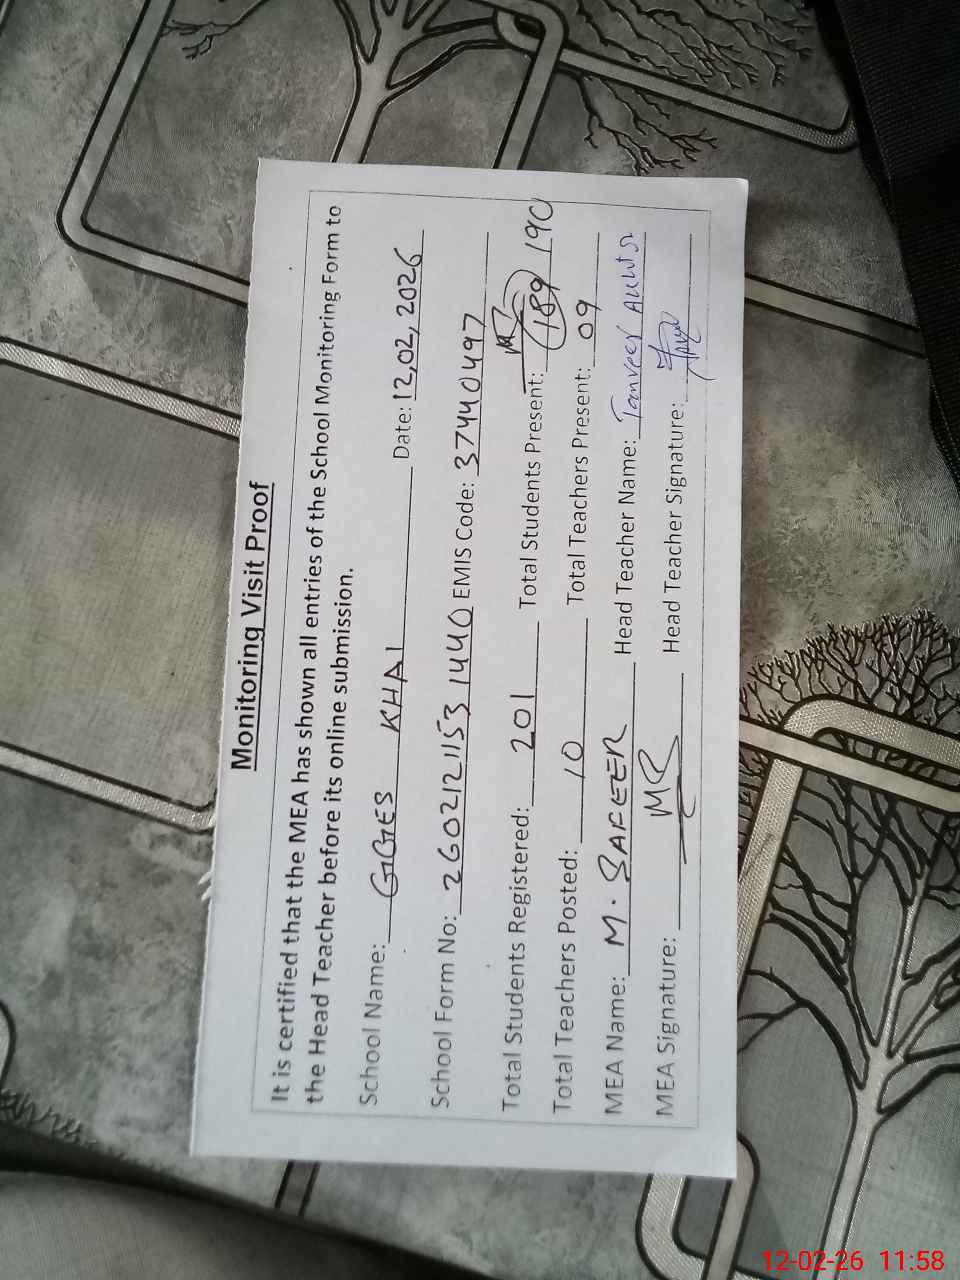 Monitoring Visit Proof
It is certified that the MEA has shown all entries of the School Monitoring Form to
the Head Teacher before its online submission.
School Name: GGES KHAI Date: 12,02,2026
School Form No: 2602121153 1440 EMIS Code: 37440497
Total Students Registered: 201 Total Students Present: 189 190
Total Teachers Posted: 10 Total Teachers Present: 09
MEA Name: M. SAFEER Head Teacher Name: Tanveer
MEA Signature: Head Teacher Signature:
12-02-26 11:58